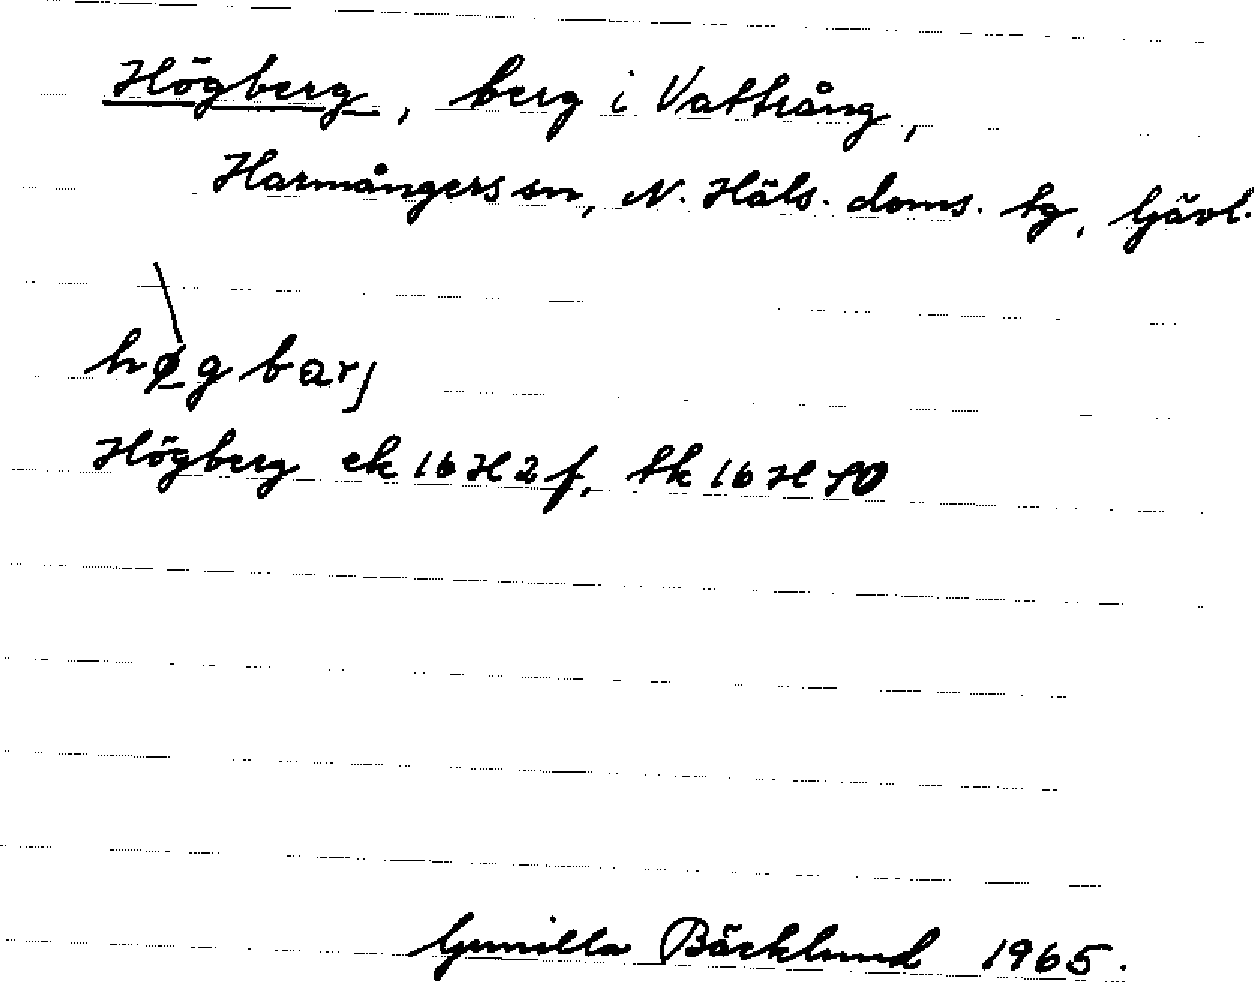 Högberg, berg i Vattrång,
Harmångers sn, N. Häls. doms. tg, Gävl.
hø̀gbarj
Högberg ek 16H2f, tk 16H SO
Gunilla Bäcklund 1965.